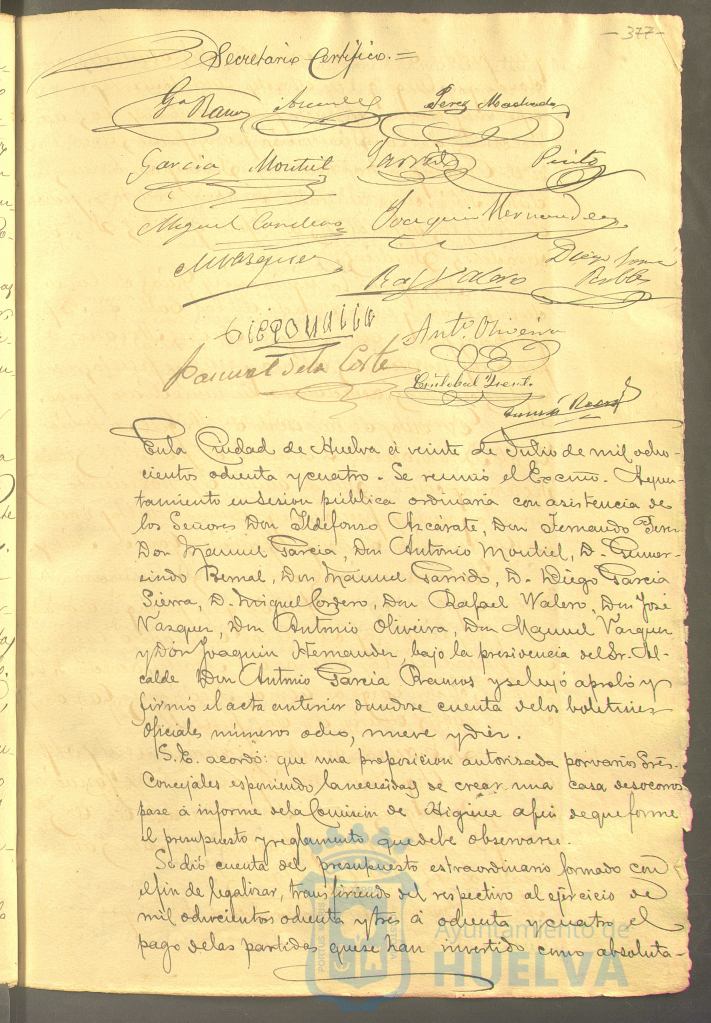 - 377 -
Secretario Certifico.=
Ga Ramos Azcarate Perez Machado
Garcia Montiel Garrido Pinto
Miguel Cordero Joaquin Hernandez
M Vazquez Diego Garcia
Raf Valero
Ant.o Oliveira
Manuel de la Corte
Cristobal
En la Ciudad de Huelva á veinte de Julio de mil ocho-
cientos ochenta y cuatro. Se reunió el Excmo. Ayun-
tamiento en sesion pública ordinaria con asistencia de
los Señores Don Ildefonso Azcárate, Don Fernando
Don Manuel Garcia, Don Antonio Montiel, D. Gumer-
sindo Bernal, Don Manuel Garrido, D. Diego Garcia
Sierra, D. Miguel Cordero, Don Rafael Valero, Don José
Vazquez, Don Antonio Oliveira, Don Manuel Vazquez
y Don Joaquin Hernandez, bajo la presidencia del Sr. Al-
calde Don Antonio Garcia Ramos y se leyó aprobó y
firmó el acta anterior dandose cuenta de los boletines
oficiales números ocho, nueve y diez.
S.E. acordó: que una proposicion autorizada por varios Sres.
Concejales esponiendo la necesidad de crear una casa de socorros
pase á informe de la Comision de Higiene a fin de que forme
el presupuesto y reglamento que debe observarse.
Se dió cuenta del presupuesto estraordinario formado con
el fin de legalizar, transfiriendo del respectivo al ejercicio de
mil ochocientos ochenta y tres á ochenta y cuatro el
pago de las partidas que se han invertido como absoluta-
Ayuntamiento de
HUELVA